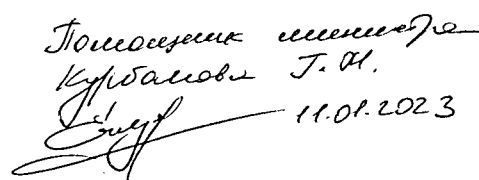 Помощник министра
Курбанова Г.Н.
11.01.2023